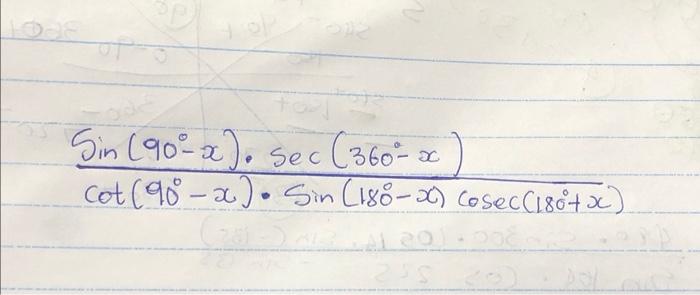 Sin(90°-x). sec(360°-x)
cot(90°-x)• Sin(180°-x) cosec(180°+x)